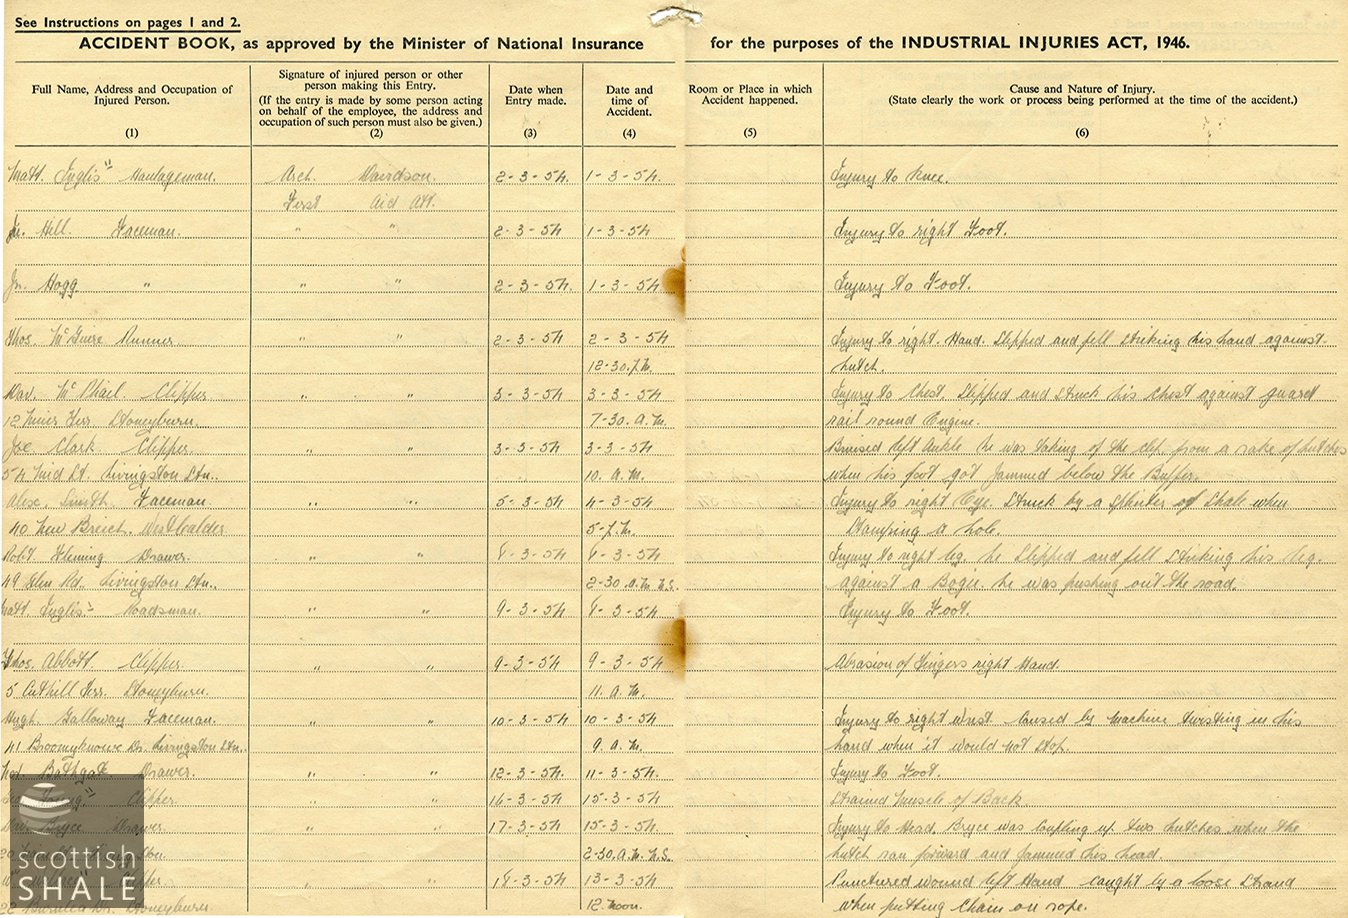 See Instructions on pages 1 and 2.
ACCIDENT BOOK, as approved by the Minister of National Insurance for the purposes of the INDUSTRIAL INJURIES ACT, 1946.
Full Name, Address and Occupation of
Injured Person.
(1)
Signature of injured person or other
person making this Entry.
(If the entry is made by some person acting
on behalf of the employee, the address and
occupation of such person must also be given.)
(2)
Date when
Entry made.
(3)
Date and
time of
Accident.
(4)
Room or Place in which
Accident happened.
(5)
Cause and Nature of Injury.
(State clearly the work or process being performed at the time of the accident.)
(6)
Matt. Inglis " Haulageman. Arch. Davidson. 2-3-54. 1-3-54. Injury to knee.
First Aid Att.
Jn. Hill. Faceman. " " 2-3-54 1-3-54 Injury to right Foot.
Jn. Hogg " " " 2-3-54. 1-3-54 Injury to Foot.
Thos. McGuire Runner. " " 2-3-54 2-3-54 Injury to right. Hand. Slipped and fell striking his hand against
12-30. P.M. hutch.
Dav. McPhail. Clipper " " 3-3-54 3-3-54 Injury to Chest. Slipped and struck his chest against guard
12 Muir Terr. Stoneyburn. 7-30. A.M. rail round Engine.
Joe. Clark. Clipper. " " 3-3-54 3-3-54 Bruised left Ankle he was taking of the clip from a rake of hutches
54 Mid St. Livingston Stn. 10. A.M. when his foot got jammed below the Buffer.
Alex. Smith Faceman. " " 5-3-54 4-3-54 Injury to right Eye. Struck by a splinter of shale when
40 New Breich. West Calder 5-P.M. Stamping a hole.
Robt Fleming Drawer. " " 8-3-54 8-3-54 Injury to right leg. he slipped and fell striking his leg.
49 Glen Rd. Livingston Stn. 2-30. A.M. N.S. against a Bogie. he was pushing out the road.
Matt. Inglis " Roadsman. " " 9-3-54 8-3-54 Injury to Foot.
Thos. Abbott. Clipper. " " 9-3-54 9-3-54 Abrasion of Fingers right Hand.
5 Cuthill Terr. Stoneyburn. 11. A.M.
Hugh. Galloway Faceman. " " 10-3-54 10-3-54 Injury to right wrist caused by machine twisting in his
41 Broomyknowe Dr. Livingston Stn. 9. A.M. hand when it would not stop.
Bathgate Drawer. " " 12-3-54. 11-3-54. Injury to Foot.
Young " Clipper. " " 16-3-54 15-3-54 Strained muscle of Back
Dav. Bryce Drawer. " " 17-3-54 15-3-54 Injury to Head. Bryce was coupling up two hutches when the
Stn. 2-30. A.M. N.S. hutch ran forward and jammed his head.
Clipper. " " 18-3-54 13-3-54 Punctured wound left Hand caught by a loose strand
22 Dr. Stoneyburn. 12. noon. when putting chain on rope.
scottish
SHALE